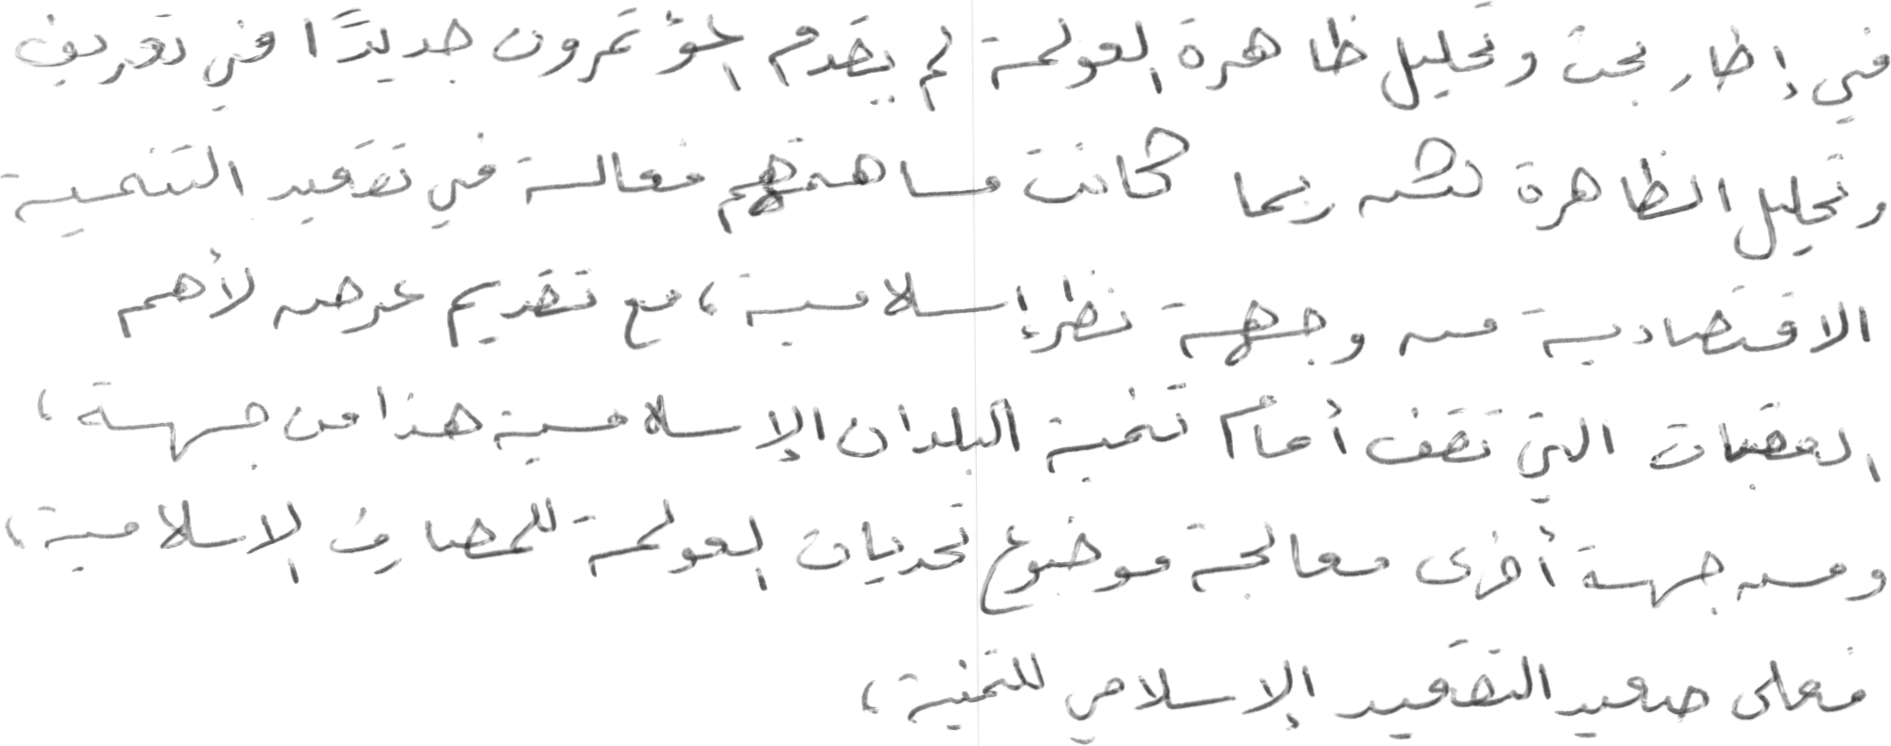 في إطار بحث وتحليل ظاهرة العولمة لم يقدم المؤتمرون جديدًا في تعريف
وتحليل الظاهرة لكن ربما كانت مساهمتهم فعالة في تقعيد التنمية
الاقتصادية من وجهة نظر إسلامية، مع تقديم عرض لأهم
العقبات التي تقف أمام تنمية البلدان الإسلامية هذا من جهة،
ومن جهة أخرى معالجة موضوع تحديات العولمة للمصارف الاسلامية،
فعلى صعيد التقعيد الإسلامي للتنمية،